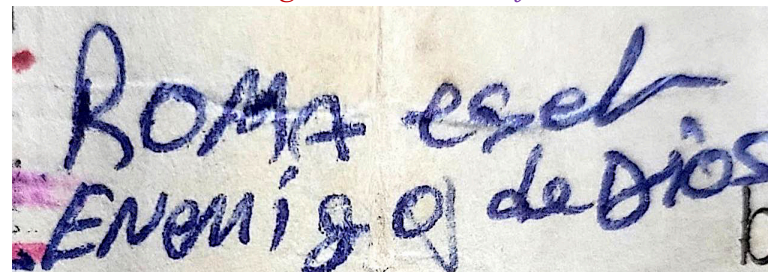 ROMA es el
ENEMigo de Dios